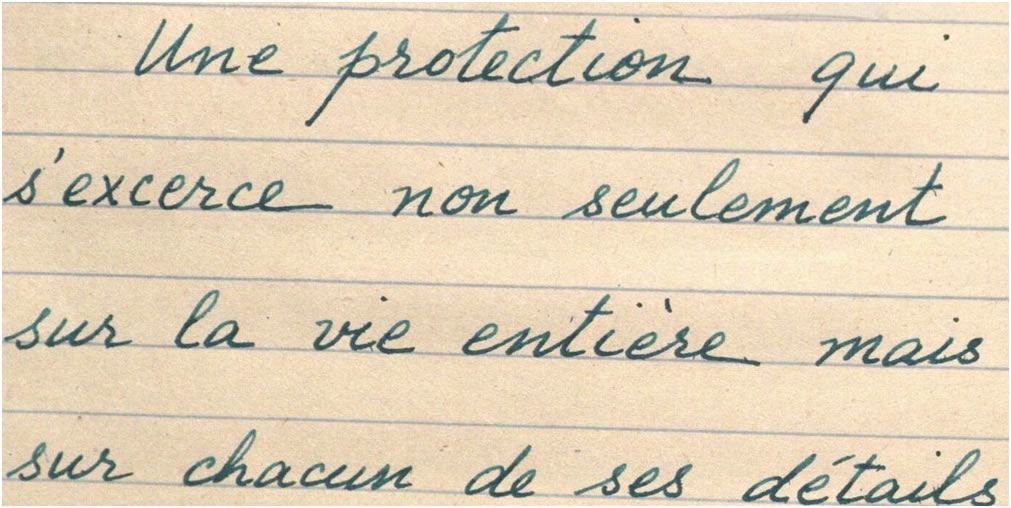 Une protection qui
s'excerce non seulement
sur la vie entière mais
sur chacun de ses détails